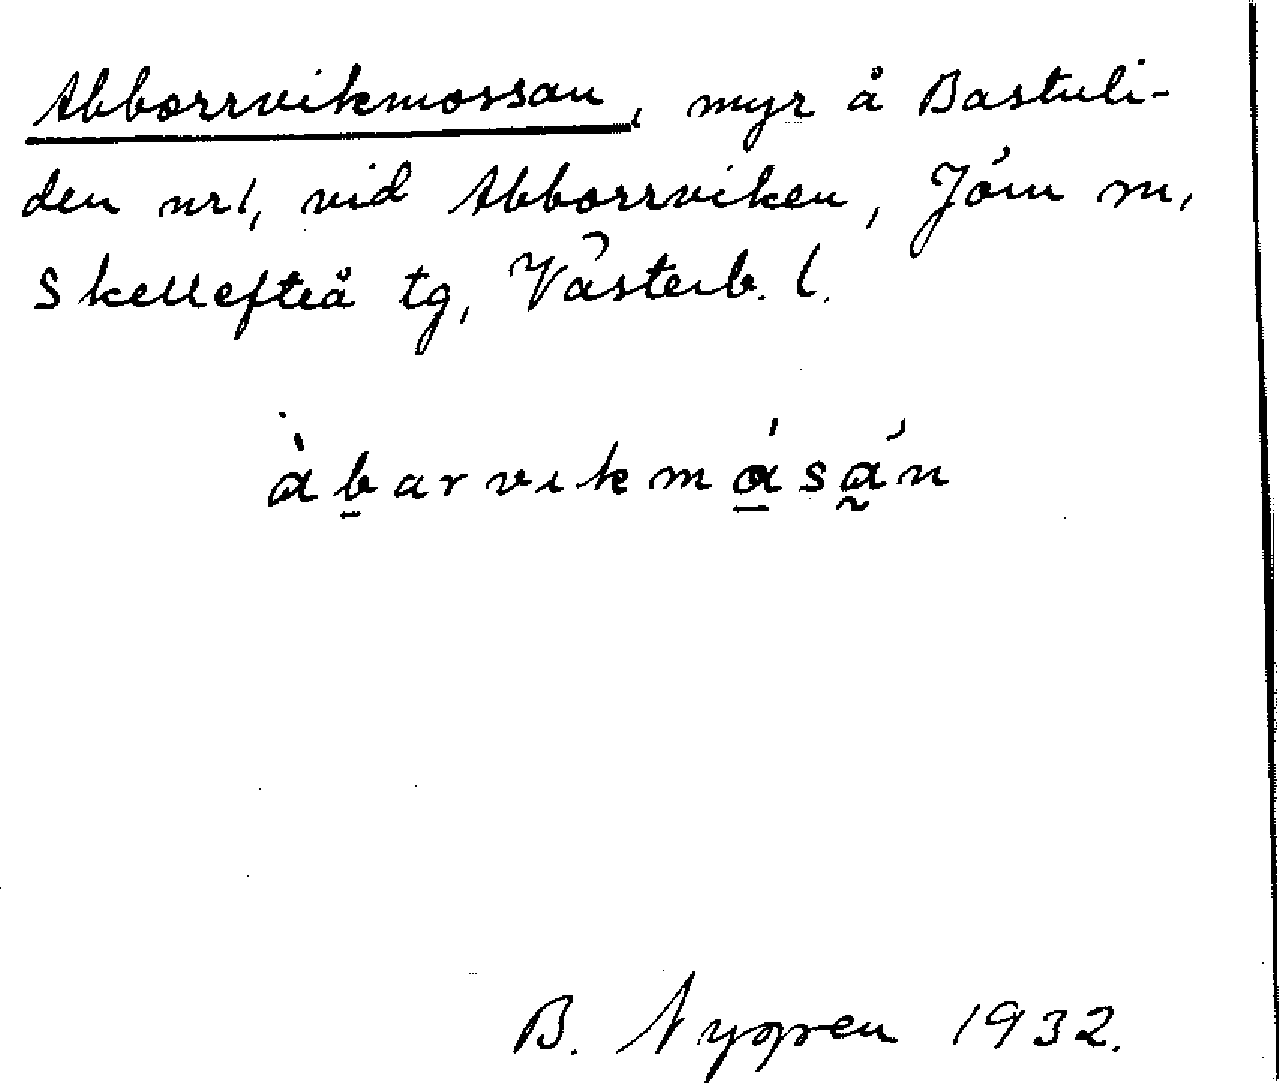 Abborrvikmossan, myr å Bastuli-
den nr 1, vid Abborrviken, Jörn m,
Skellefteå tg, Västerb. l.
àb̲arvikmá̲sá̰n
B. Nygren 1932.